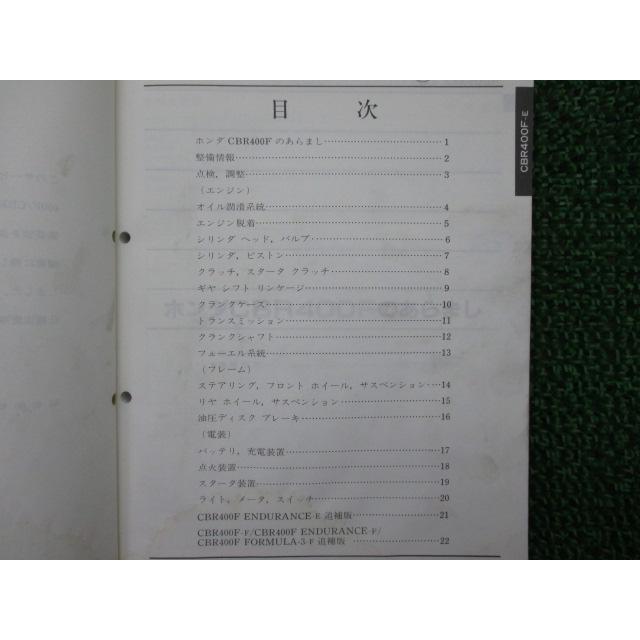 目 次
CBR400F-E
ホンダ CBR400F のあらまし 1
整備情報 2
点検，調整 3
（エンジン）
オイル潤滑系統 4
エンジン脱着 5
シリンダ ヘッド，バルブ 6
シリンダ，ピストン 7
クラッチ，スタータ クラッチ 8
ギヤ シフト リンケージ 9
クランクケース 10
トランスミッション 11
クランクシャフト 12
フューエル系統 13
（フレーム）
ステアリング，フロント ホイール，サスペンション 14
リヤ ホイール，サスペンション 15
油圧ディスク ブレーキ 16
（電装）
バッテリ，充電装置 17
点火装置 18
スタータ装置 19
ライト，メータ，スイッチ 20
CBR400F ENDURANCE-E 追補版 21
CBR400F-F/CBR400F ENDURANCE-F/
CBR400F FORMULA-3-F 追補版 22